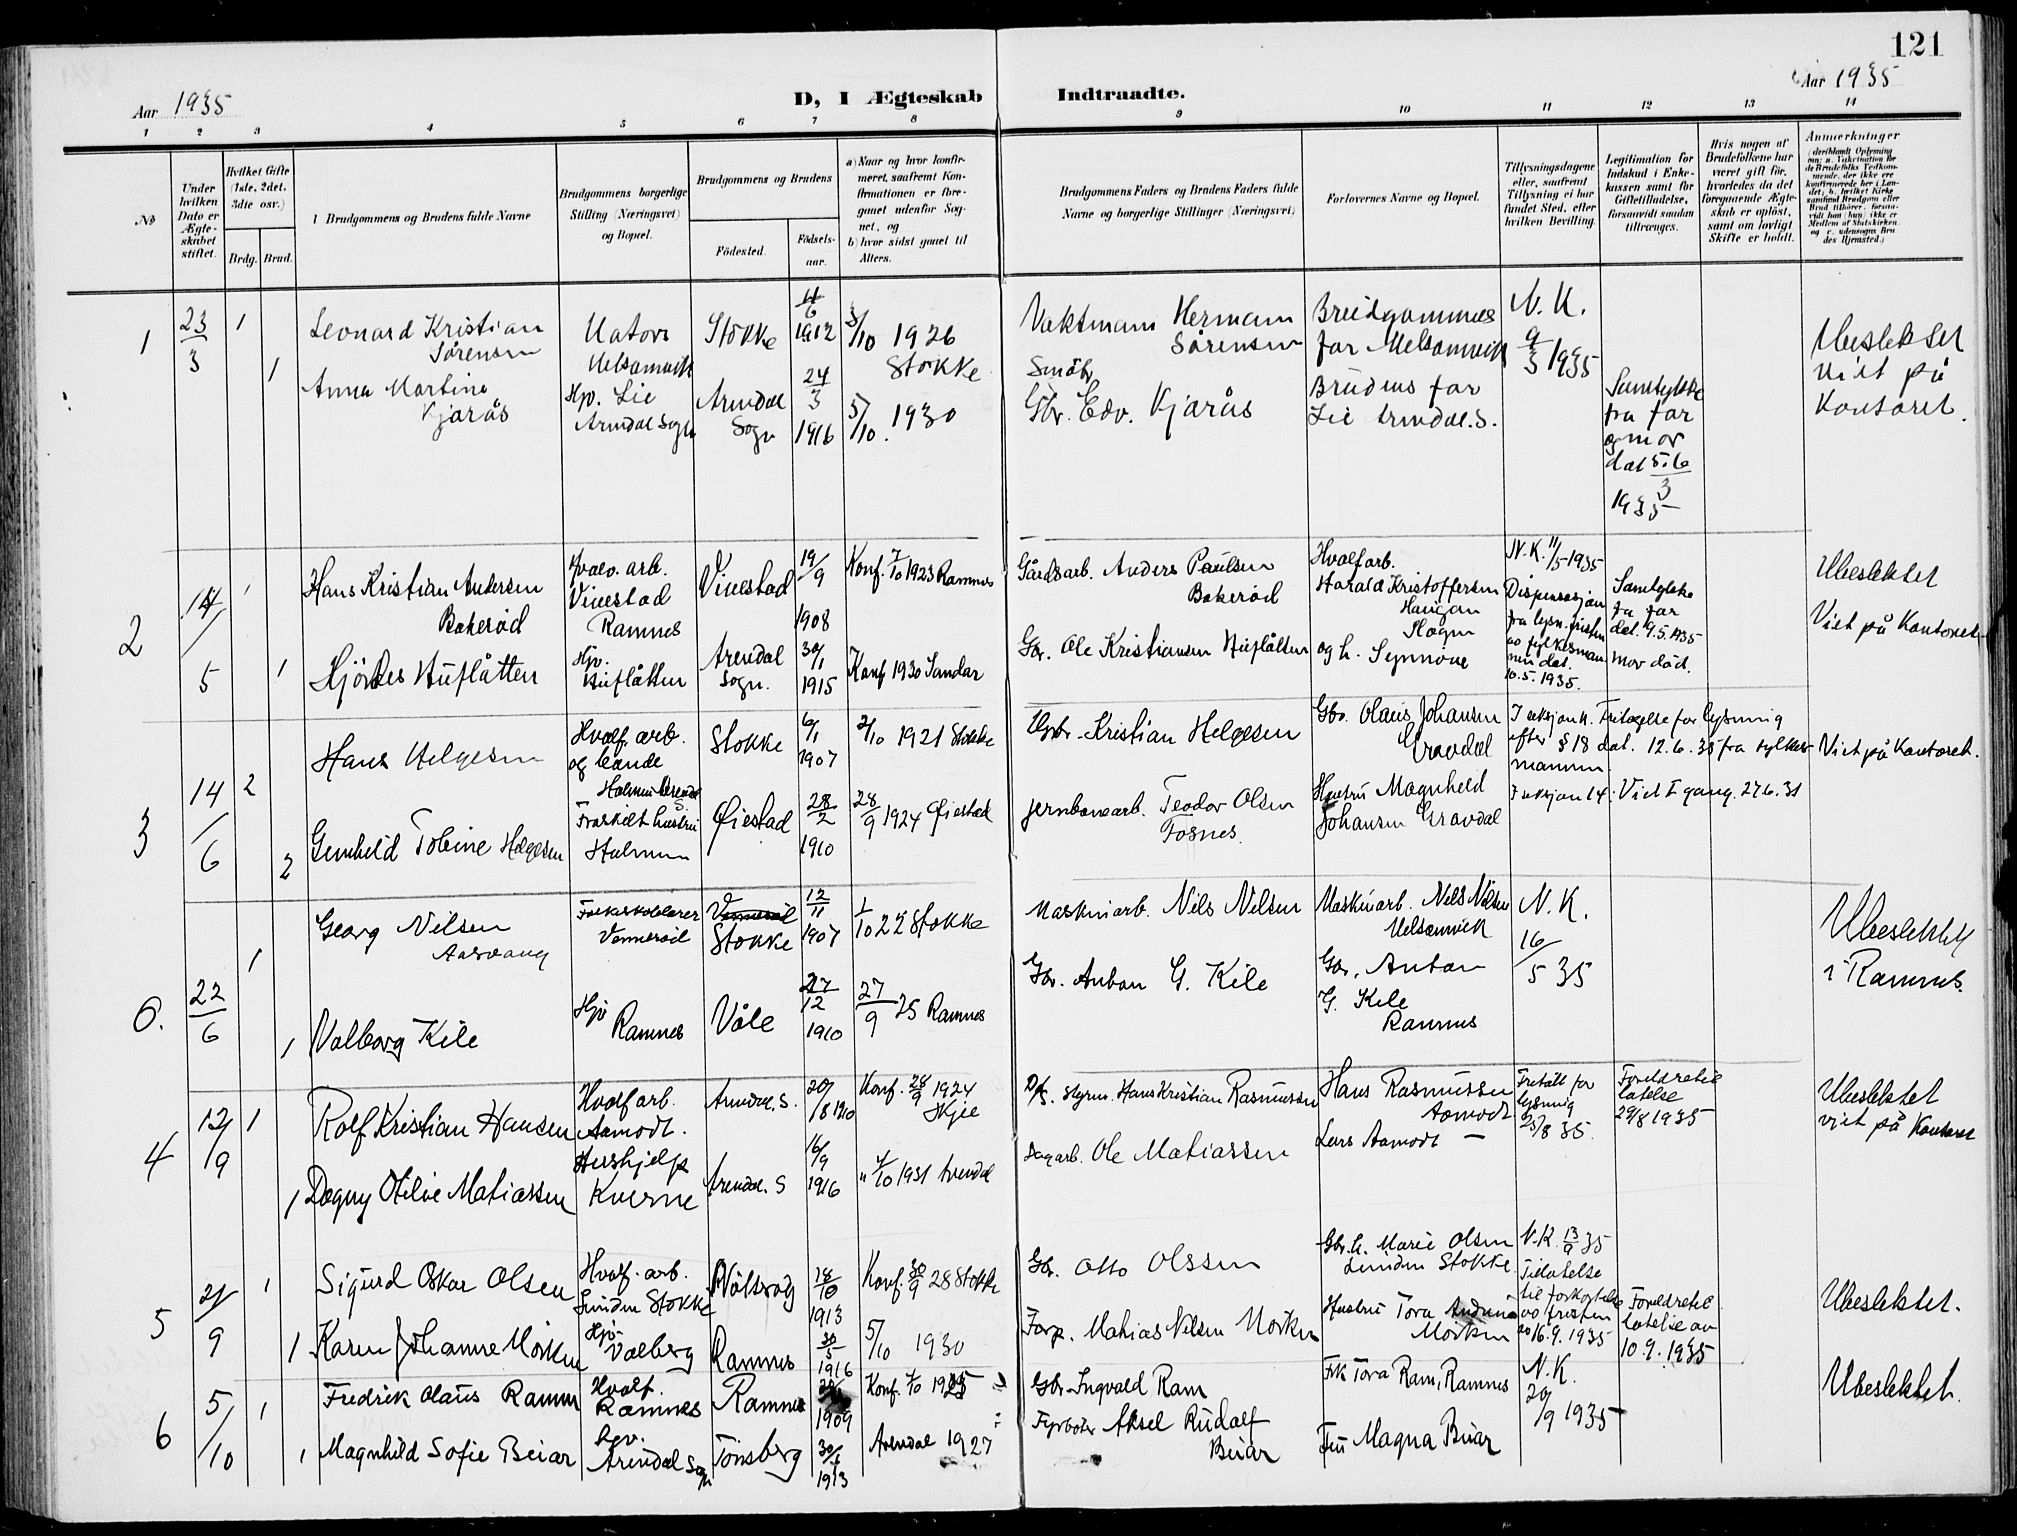 121
Aar 1935
D, I Ægteskab Indtraadte.
Aar 1935
1 2 3 4 5 6 7 8 9 10 11 12 13 14
No
Under hvilken Dato er Ægteskabet stiftet.
Hvilket Gifte (1ste, 2det, 3die osv.)
Brdg. Brud.
Brudgommens og Brudens fulde Navne
Brudgommens borgerlige Stilling (Næringsvei) og Bopæl.
Brudgommens og Brudens
Fødested.
Fødselsaar.
a) Naar og hvor konfirmeret, saafremt Konfirmationen er foregaaet udenfor Sognet, og
b) hvor sidst gaaet til Alters.
Brudgommens Faders og Brudens Faders fulde Navne og borgerlige Stillinger (Næringsvei)
Forlovernes Navne og Bopæl.
Tillysningsdagene eller, saafremt Tillysning ei har fundet Sted, efter hvilken Bevilling.
Legitimation for Indskud i Enkekassen samt for Giftetilladelse, forsaavidt saadan tiltrænges.
Hvis nogen af Brudefolkene har været gift før, hvorledes da det foregaaende Ægteskab er opløst, samt om lovligt Skifte er holdt.
Anmerkninger
(deriblandt Oplysning om: a. Vakcination for de Brudefolks Vedkommende, der ikke ere konfirmerede her i Landet; b. hvilket Kirkesamfund Brudgom eller Brud tilhører, forsaavidt han (hun) ikke er Medlem af Statskirken, og c. udensogns Brudes Hjemsted.)
1 23/3 1 Leonard Kristian Sørensen Stokke 11/6 1912 3/10 1926 Stokke
Vaktmann Hermann Sørensen Breidgommes far Melsomvik N. K. 9/3 1935
Ubeslektet viet på Kontoret.
1 Anna Martine Kjærås Hjv. Lie Arendal Sogn Arendal Sogn 24/3 1916 5/10 1930
Småbr. Gbr. Edv. Kjærås Brudens far Lie Arendal. S. Samtykke fra far og mor dat 5.6/3 1935
2 14/5 1 Hans Kristian Andersen Bakerød Hvalv. arb. Vivestad Ramnes Vivestad 19/9 1908 Konf. 7/10 1923 Ramnes
Gårdsarb. Anders Paulsen Bakerød Hvalfarb. Harald Kristoffersen Haugan Slagn N. K. 11/5 1935 Dispensasjon fra lysn. fristen av fylkesmannen dat. 10.5.1935.
Samtykke fra far dat. 9.5.1935 mor død.
Ubeslektet Viet på Kontoret
1 Hjördes Huflåtten Hjv. Huflåtten Arendal Sogn. 30/1 1915 Konf 1930 Sandar
Gbr. Ole Kristiansen Huflåtten og h. Synnøve
3 14/6 2 Hans Helgesen Hvalf. arb. og bonde Stokke 6/1 1907 2/10 1921 Stokke
Gbr. Kristian Helgesen Gbr. Olaus Johansen Gravdal
Fritagelse for lysning efter § 18 dat. 12.6.35 fra fylkesmannen
Viet på Kontoret.
2 Gunhild Tobine Helgesen Fraskilt hustru Holmen Øiestad 28/2 1910 28/9 1924 Øiestad
Jernbanearb. Teodor Olsen Fosnes. Hustru Magnhild Johansen Gravdal
Viet I gang. 27.6.31
6. 22/6 1 Georg Nilsen Aasvang Folkeskolelærer Vennerød Stokke 12/11 1907 1/10 22 Stokke
Maskinarb. Nils Nilsen Maskinarb. Nils Nilsen Melsomvik N. K. 16/5 35
Ubeslektet i Ramnes.
1 Valborg Kile Hjv Ramnes Våle 27/12 1910 27/9 25 Ramnes
Gbr. Anton G. Kile Gbr. Anton G. Kile Ramnes
4 12/9 1 Rolf Kristian Hansen Hvalfarb. Aamodt. Arendal. S. 20/8 1910 Konf. 28/9 1924 Skjee
Styrm. Hans Kristian Rasmussen Hans Rasmussen Aamodt Fritatt for lysning 25/8 35.
Foreldretillatelse 29/8 1935
Ubeslektet viet på Kontoret
1 Dagny Otilie Matiassen Hushjelp Kverne Arendal. S 16/9 1916 " 4/10 1931 Arendal
Dagarb. Ole Matiassen Lars Aamodt —
5 21/9 1 Sigurd Oskar Olsen Hvalf. arb. Linden Stokke Nøtterøy 18/10 1913 Konf. 30/9 28 Stokke
Gbr. Otto Olssen Gbr. h. Marie Olsen Linden Stokke N. K. 13/9 35 Tillatelse til forkortelse av fristen 16.9.1935
Foreldretillatelse av 10.9.1935
Ubeslektet.
1 Karen Johanne Mörken Hjv Valberg Ramnes 30/5 1916 5/10 1930
Forp. Mathias Nilsen Mörken Hustru Tora Mörken
6 5/10 1 Fredrik Olaüs Ramm Hvalf. Ramnes Ramnes 1909 Konf. 4/10 1925
Gbr. Ingvald Ram Frk Tora Ram, Ramnes N. K. 20/9 1935
Ubeslektet.
1 Magnhild Sofie Beiar Arendal Sogn Tönsberg 30/1 1913 Arendal 1927
Fyrbøter Aksel Rüdolf Beiar Fru Magna Beiar